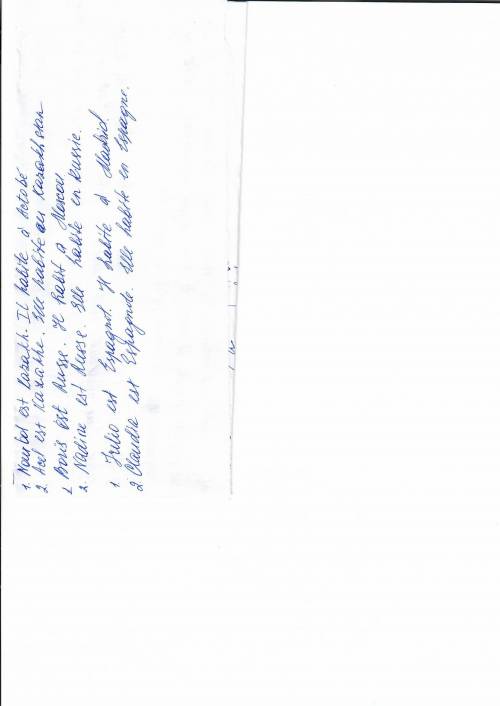 1. Nourbol est kazakh. Il habite à Actobé
2. Asel est kazakhe. Elle habite au Kazakhstan
1. Boris est Russe. Il habit a Moscou
2. Nadine est Russe. Elle habite en Russie.
1 Julio est Espagnol. Il habite à Madrid.
2. Claudia est Espagnole. Elle habite en Espagne.